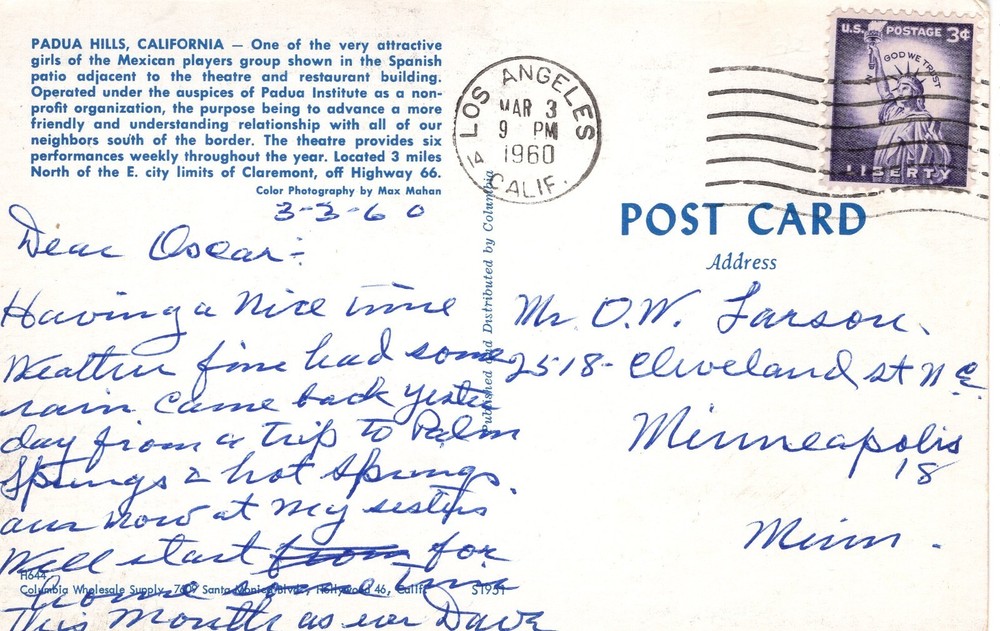 PADUA HILLS, CALIFORNIA — One of the very attractive
girls of the Mexican players group shown in the Spanish
patio adjacent to the theatre and restaurant building.
Operated under the auspices of Padua Institute as a non-
profit organization, the purpose being to advance a more
friendly and understanding relationship with all of our
neighbors south of the border. The theatre provides six
performances weekly throughout the year. Located 3 miles
North of the E. city limits of Claremont, off Highway 66.
Color Photography by Max Mahan
3-3-60
Dear Oscar:-
Having a Nice time
Weather fine had some
rain came back yester
day from a trip to Palm
Springs & hot Springs.
am now at my sisters
Will start from for
home some time
This Month as ever Dave
H644
Columbia Wholesale Supply, 7609 Santa Monica Blvd., Hollywood 46, Calif.
S1951
Published and Distributed by Columbia
LOS ANGELES
MAR 3
9 PM
1960
14
CALIF.
U.S. POSTAGE 3¢
GOD WE TRUST
LIBERTY
POST CARD
Address
Mr O.W. Larson.
2518- Cleveland st N E.
Minneapolis
18
Minn.